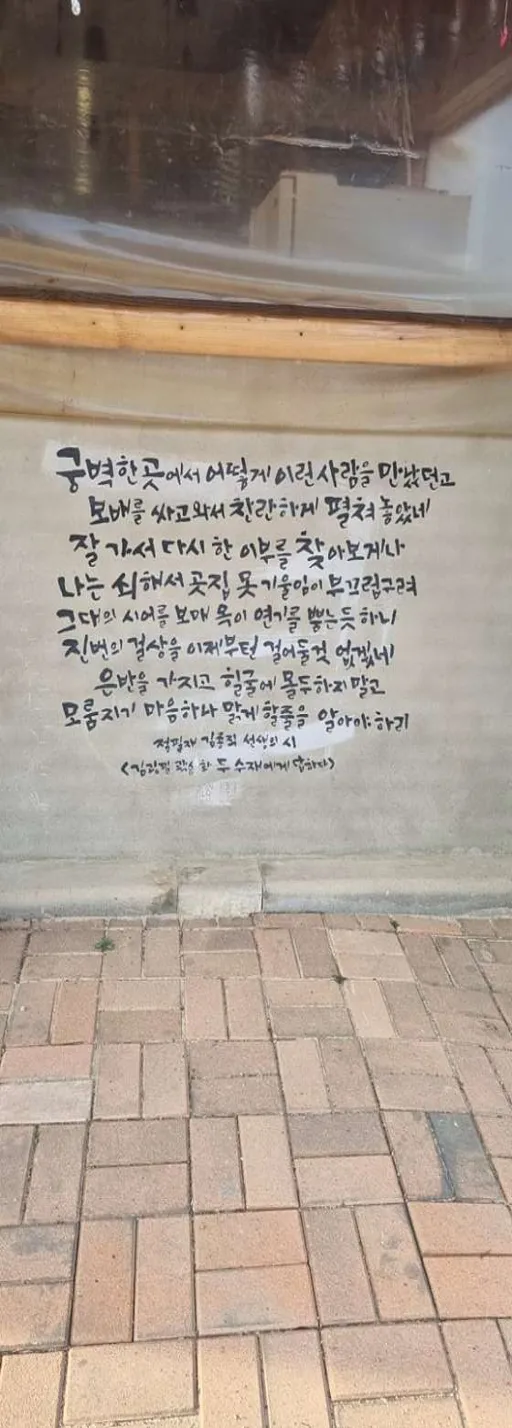 궁벽한 곳에서 어떻게 이런 사람을 만났던고
보배를 싸고와서 찬란하게 펼쳐 놓았네
잘 가서 다시 한 이부를 찾아보게나
나는 쇠해서 곳집 못 기울임이 부끄럽구려
그대의 시어를 보매 옥이 연기를 뿜는듯 하니
진번의 걸상을 이제부턴 걸어둘것 없겠네
은반을 가지고 힐굴에 몰두하지 말고
모룸지기 마음하나 맑게 할줄을 알아야 하리
점필재 김종직 선생의 시
<김굉필 곽승화 두 수재에게 답하다>